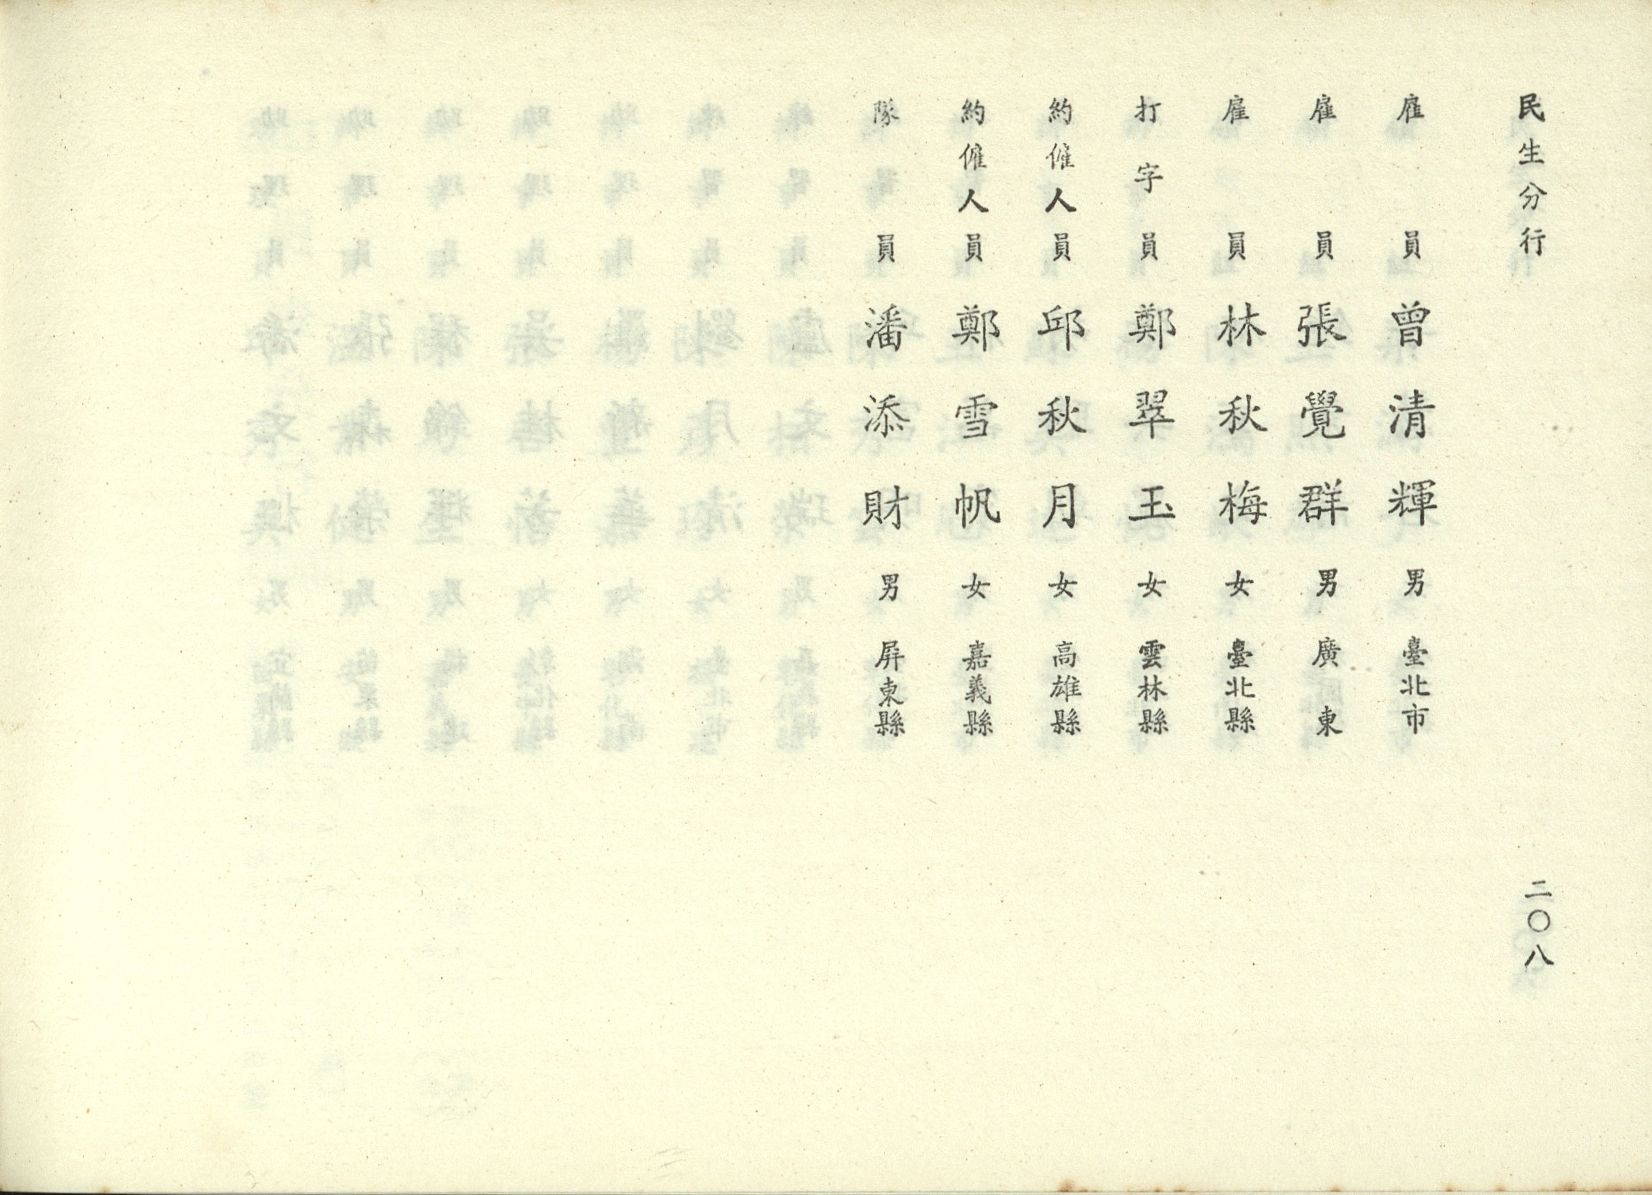 民生分行
雇員 曾清輝 男 臺北市
雇員 張覺群 男 廣東
雇員 林秋梅 女 臺北縣
打字員 鄭翠玉 女 雲林縣
約僱人員 邱秋月 女 高雄縣
約僱人員 鄭雪帆 女 嘉義縣
隊員 潘添財 男 屏東縣
二〇八